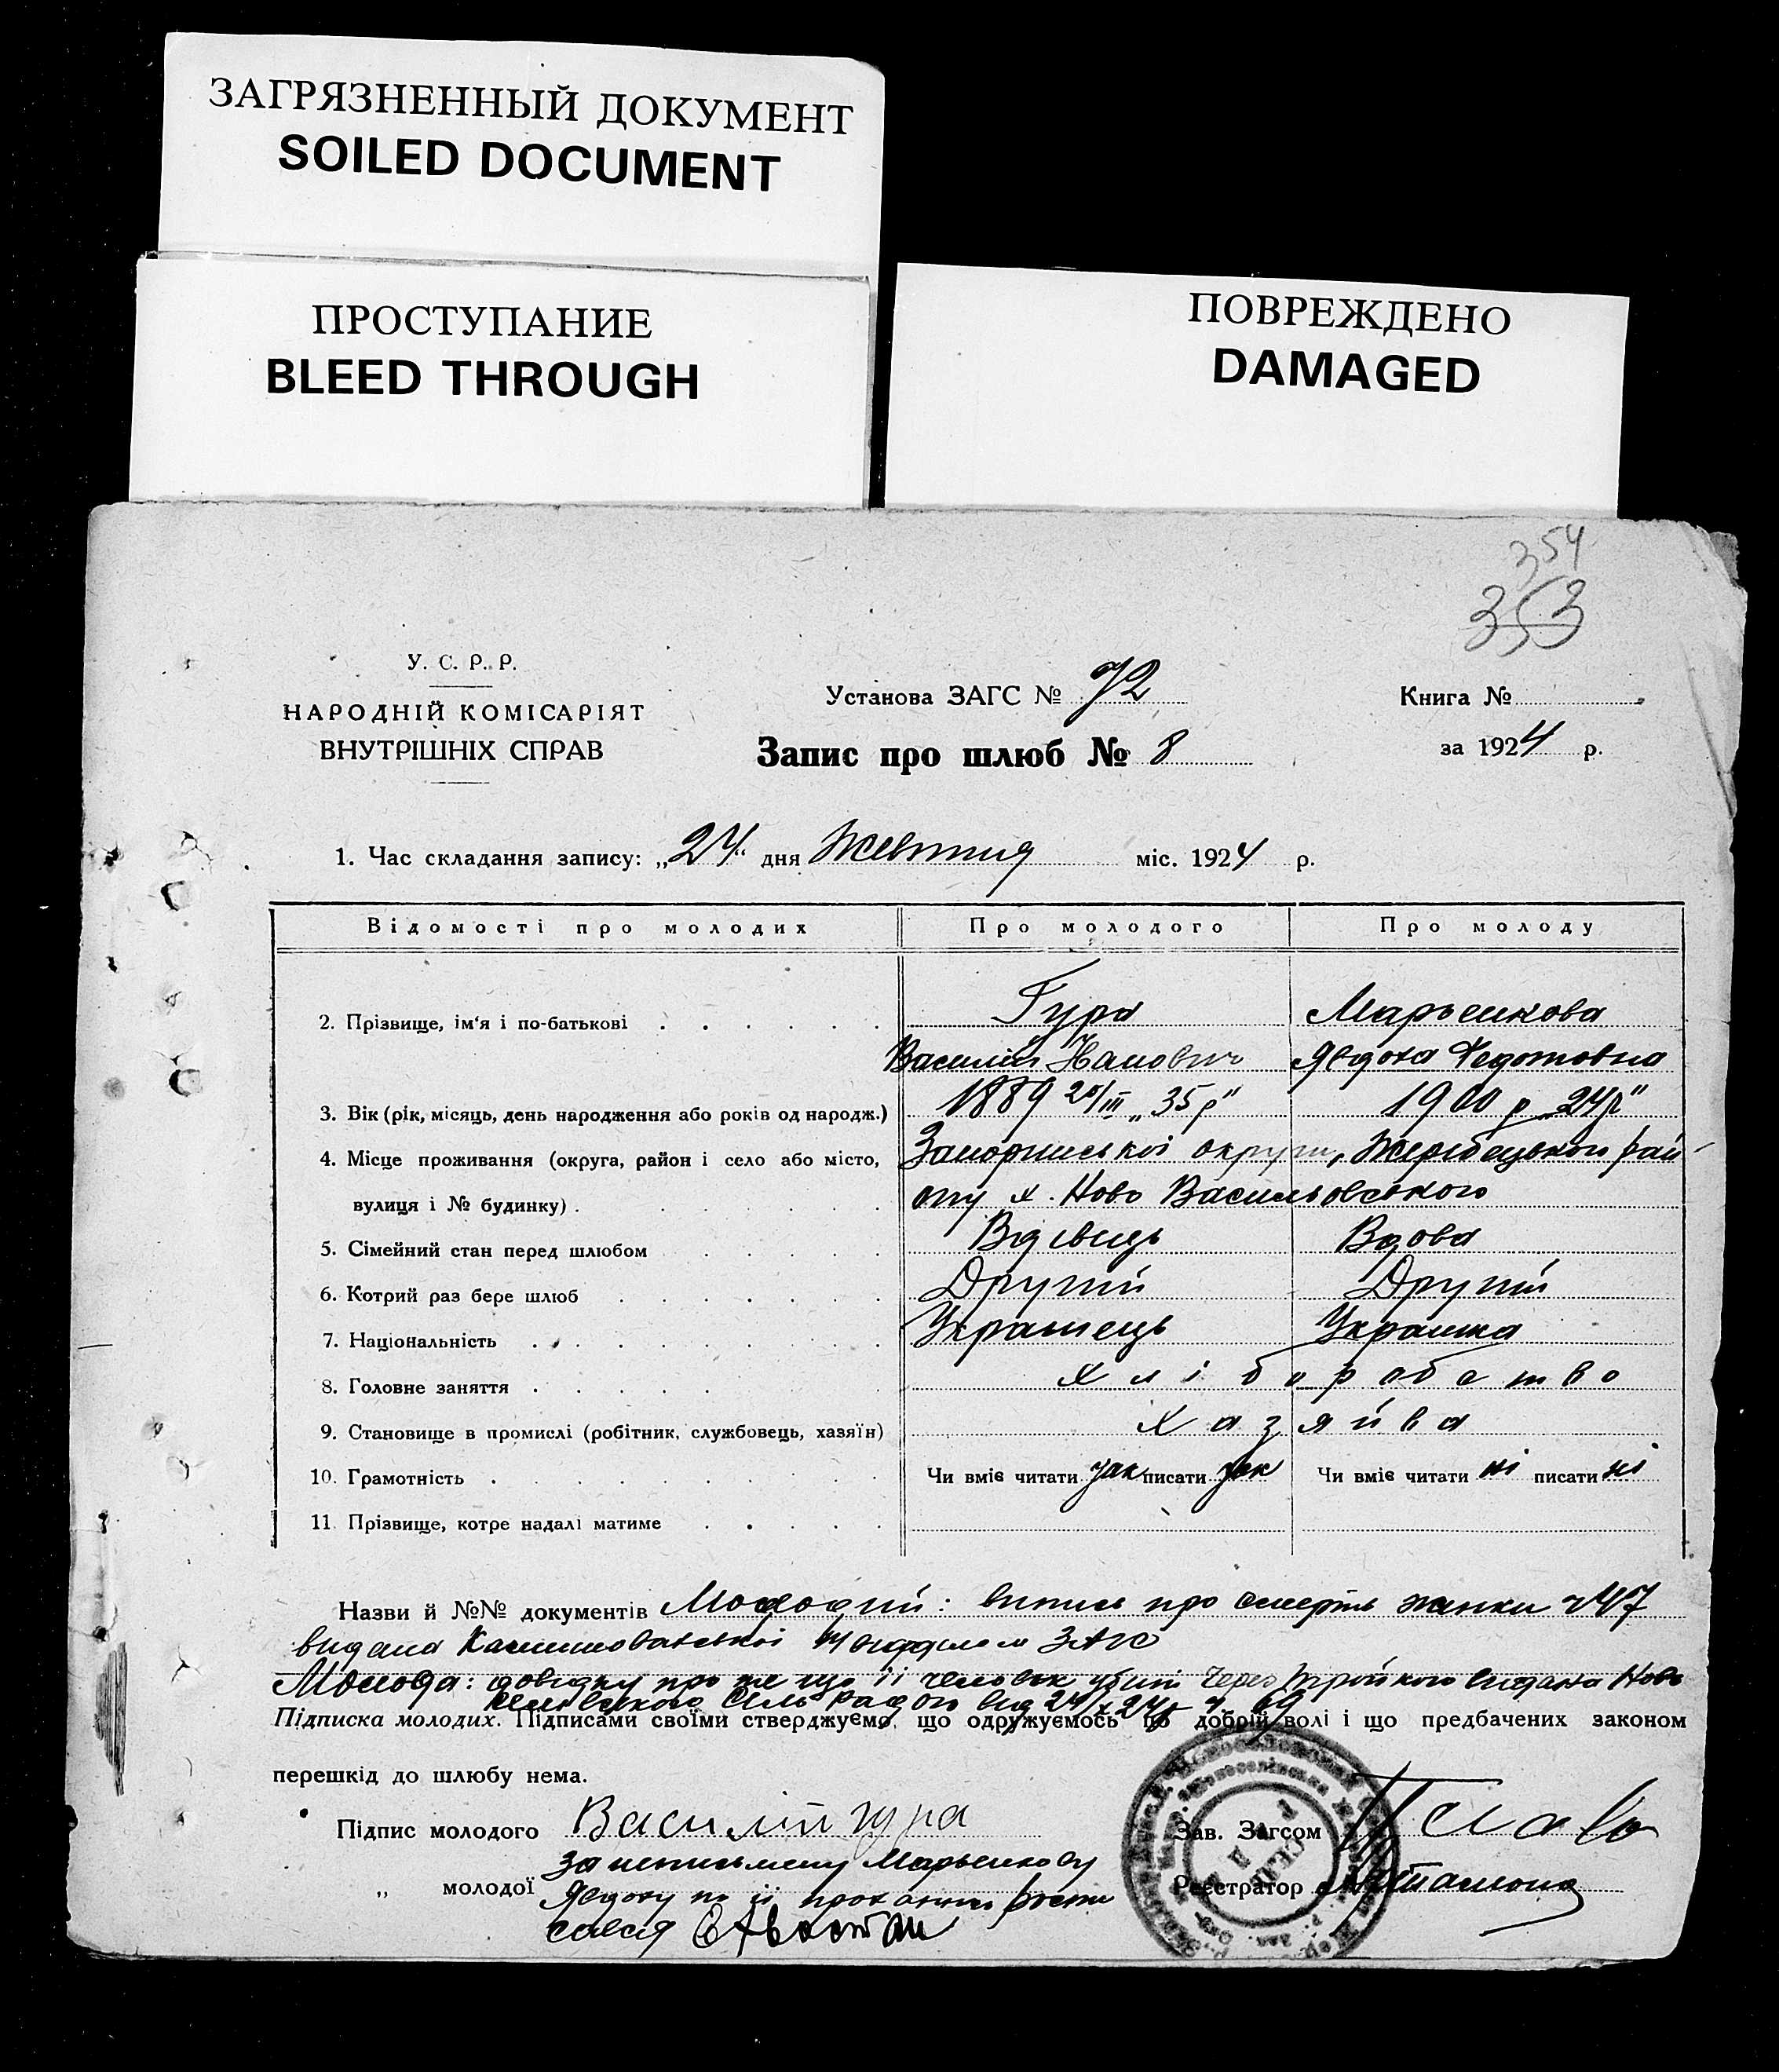 ЗАГРЯЗНЕННЫЙ ДОКУМЕНТ
SOILED DOCUMENT
ПРОСТУПАНИЕ
BLEED THROUGH
ПОВРЕЖДЕНО
DAMAGED
354
353
У. С. Р. Р.
НАРОДНІЙ КОМІСАРІЯТ
ВНУТРІШНІХ СПРАВ
Установа ЗАГС № 72
Запис про шлюб № 8
Книга №
за 1924 р.
1. Час складання запису: „24“ дня Жевтня міс. 1924 р.
Відомості про молодих Про молодого Про молоду
2. Прізвище, ім‘я і по-батькові Гура Марьенкова
Василій Явдоха Федотовна
3. Вік (рік, місяць, день народження або років од народж.) 1889 20/III „35 р“ 1900 р „24р“
4. Місце проживання (округа, район і село або місто, Запоріжської округи, Жеребецького рай
вулиця і № будинку). ону х. Ново Васильовського
5. Сімейний стан перед шлюбом Вдівець Вдова
6. Котрий раз бере шлюб Другий Другий
7. Національність Украінець Украінка
8. Головне заняття хліборобство
9. Становище в промислі (робітник, службовець, хазяїн) хазяйва
10. Грамотність Чи вміє читати так писати так Чи вміє читати ні писати ні
11. Прізвище, котре надалі матиме
Назви й №№ документів Молодий: випись про смерть жинки
видана ЗАГС
Молода: довідку про те що іі чоловік убит через видана Ново
Сіль Радою від 24/X 24р ч 69
Підписка молодих. Підписами своїми стверджуємо, що одружуємось по добрій волі і що предбачених законом
перешкід до шлюбу нема.
Підпис молодого Василій гура
Зав. Загсом
за неписьмену Марьенкову
„ молодої Явдоху по іі проханню
Реєстратор